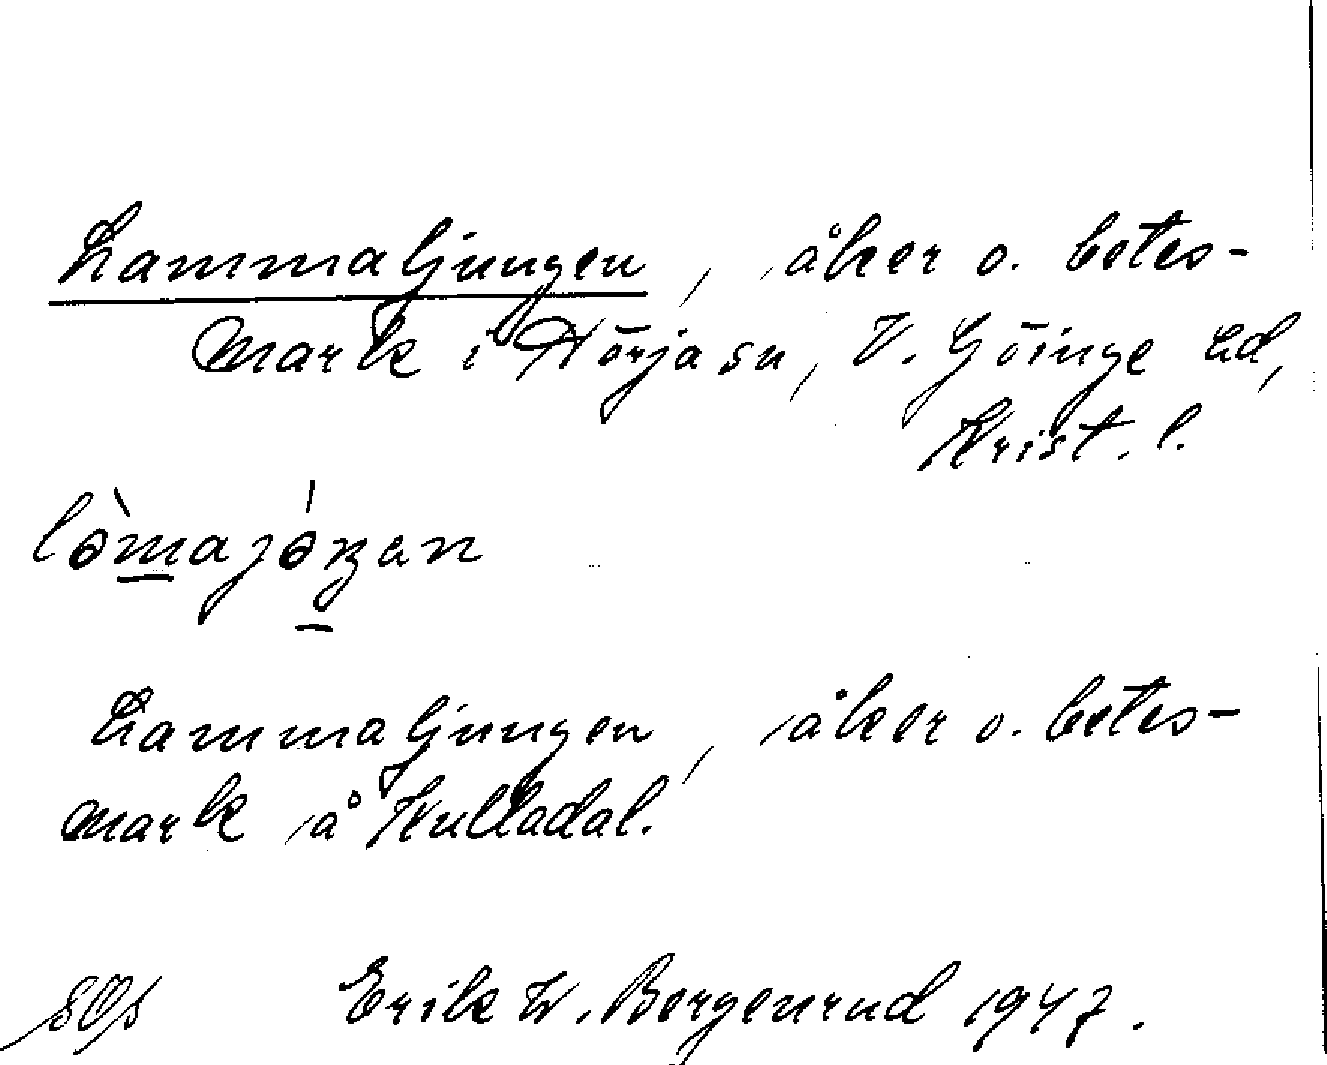 Lammaljungen, åker o. betes-
mark i Nörja sn, V. Göinge hd,
Krist. l.
Lammaljungen, åker o. betes-
mark å Kulladal.
Erik W. Borgenrud 1947.